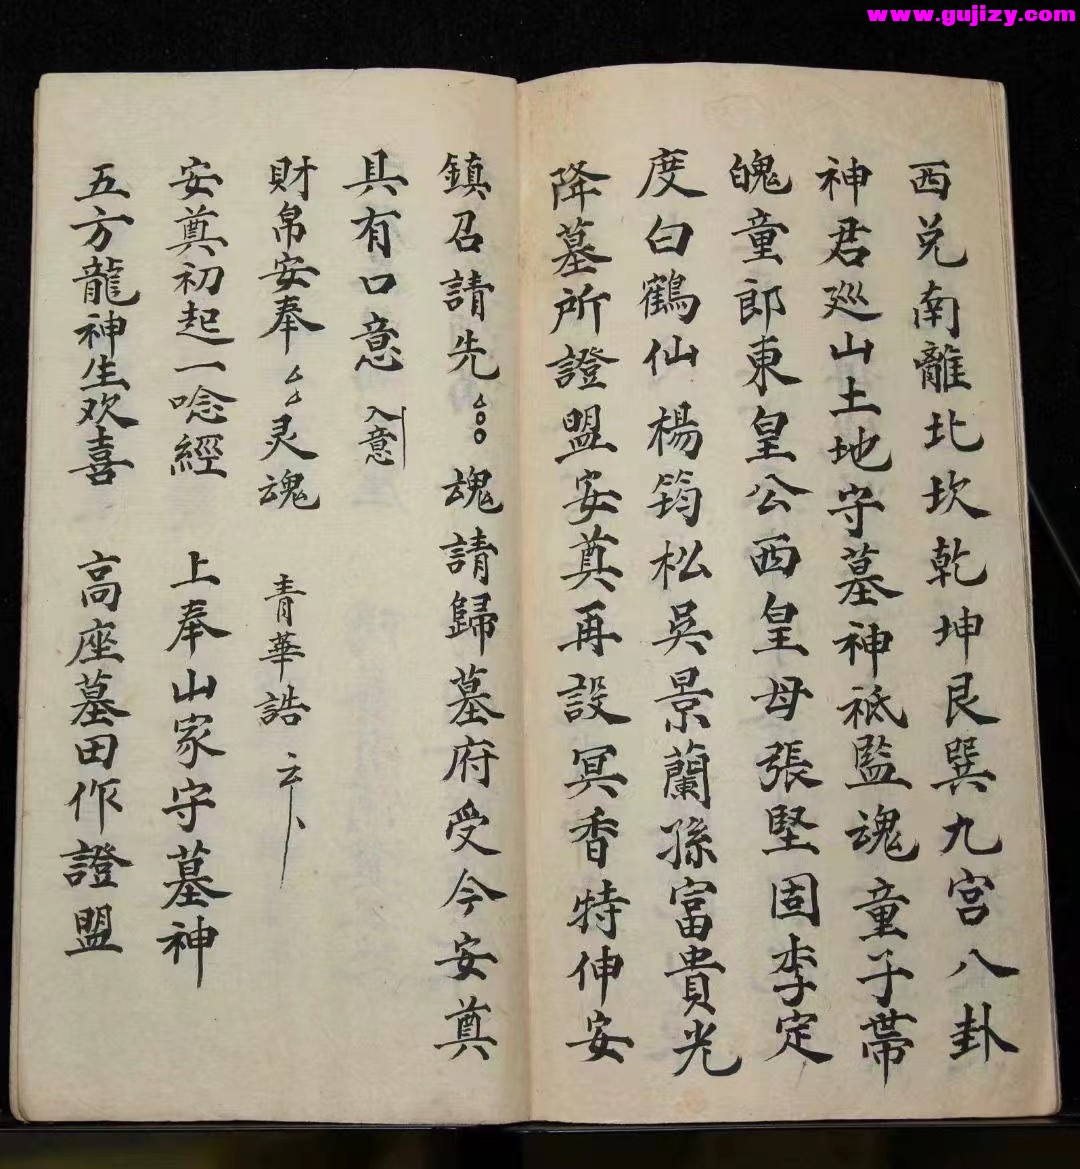 www.gujizy.com
西兑南離北坎乾坤艮巽九宫八卦
神君廵山土地守墓神祗監魂童子帶
魄童郎東皇公西皇母張堅固李定
度白鶴仙楊筠松吳景蘭孫富貴光
降墓所證盟安奠再設冥香特伸安
鎮召請先厶○○魂請歸墓府受今安奠
具有口意 入意
財帛安奉厶厶灵魂 青華誥 云
安奠初起一唸經 上奉山家守墓神
五方龍神生欢喜 高座墓田作證盟